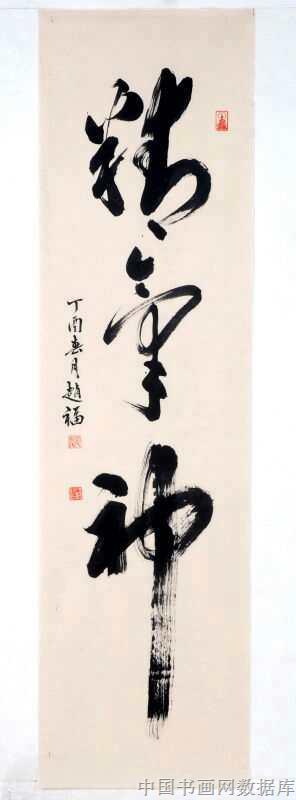 精氣神
丁酉春月趙福
中国书画网数据库